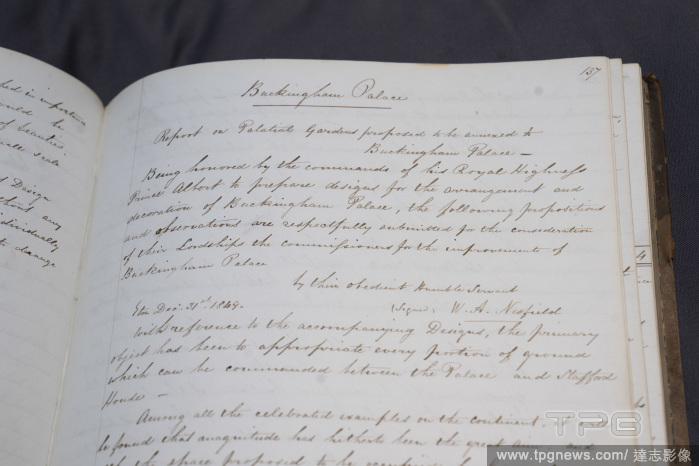 ched in importance
would be
of Securities
well scale
Design
without any
individually
to damage
157
Buckingham Palace
Report on Palatial Gardens proposed to be annexed to
Buckingham Palace —
Being honored by the commands of his Royal Highness
Prince Albert to prepare designs for the arrangement and
decoration of Buckingham Palace, the following propositions
and observations are respectfully submitted for the consideration
of their Lordships the commissioners for the improvement of
Buckingham Palace
by their obedient Humble Servant
Eton Dec. 31st 1849. (Signed) W. A. Nesfield
With reference to the accompanying Designs, the primary
object has been to appropriate every portion of ground
which can be commanded between the Palace and Stafford
House —
Among all the celebrated examples on the continent, it will
be found that magnitude has hitherto been the great
the space proposed to
4
TPG
www.tpgnews.com/ 達志影像